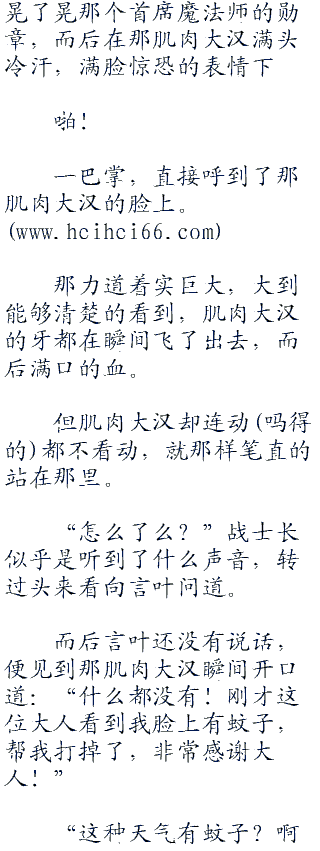 晃了晃那个首席魔法师的勋
章，而后在那肌肉大汉满头
冷汗，满脸惊恐的表情下
啪！
一巴掌，直接呼到了那
肌肉大汉的脸上。
(www.hcihci66.com)
那力道着实巨大，大到
能够清楚的看到，肌肉大汉
的牙都在瞬间飞了出去，而
后满口的血。
但肌肉大汉却连动(吗得
的)都不看动，就那样笔直的
站在那里。
“怎么了么？”战士长
似乎是听到了什么声音，转
过头来看向言叶问道。
而后言叶还没有说话，
便见到那肌肉大汉瞬间开口
道：“什么都没有！刚才这
位大人看到我脸上有蚊子，
帮我打掉了，非常感谢大
人！”
“这种天气有蚊子？啊